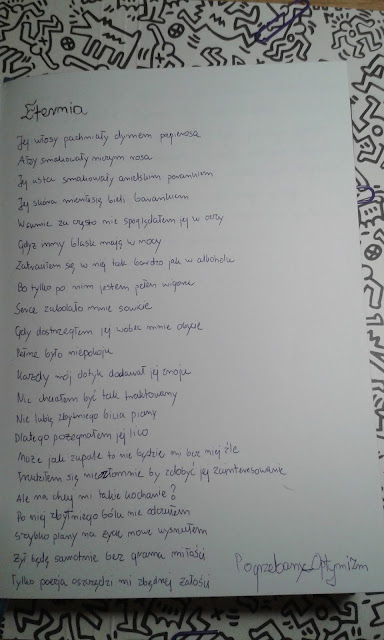 Eternia
Jej włosy pachniały dymem papierosa
A łzy smakowały niczym rosa
Jej usta smakowały anielskim porankiem
Jej skóra mieniła się bieli barankiem
W sumie za często nie spoglądałem jej w oczy
Gdyż inny blask mają w nocy
Zatraciłem się w niej tak bardzo jak w alkoholu
Bo tylko po nim jestem pełen wigoru
Serce zabolało mnie sowicie
Gdy dostrzegłem jej wobec mnie obycie
Pełne było niepokoju
Każdy mój dotyk dodawał jej znoju
Nie chciałem być tak traktowany
Nie lubię zbytniego bicia piany
Dlatego pożegnałem jej lico
Może jak zapalę to nie będzie mi bez niej źle
Trudziłem się niezłomnie by zdobyć jej zainteresowanie
Ale na chuj mi takie kochanie?
Po niej zbytniego bólu nie odczułem
Szybko plany na życie nowe wysnułem
Żył będę samotnie bez grama miłości
Tylko poezja oszczędzi mi zbędnej żałości
Pogrzebany Optymizm